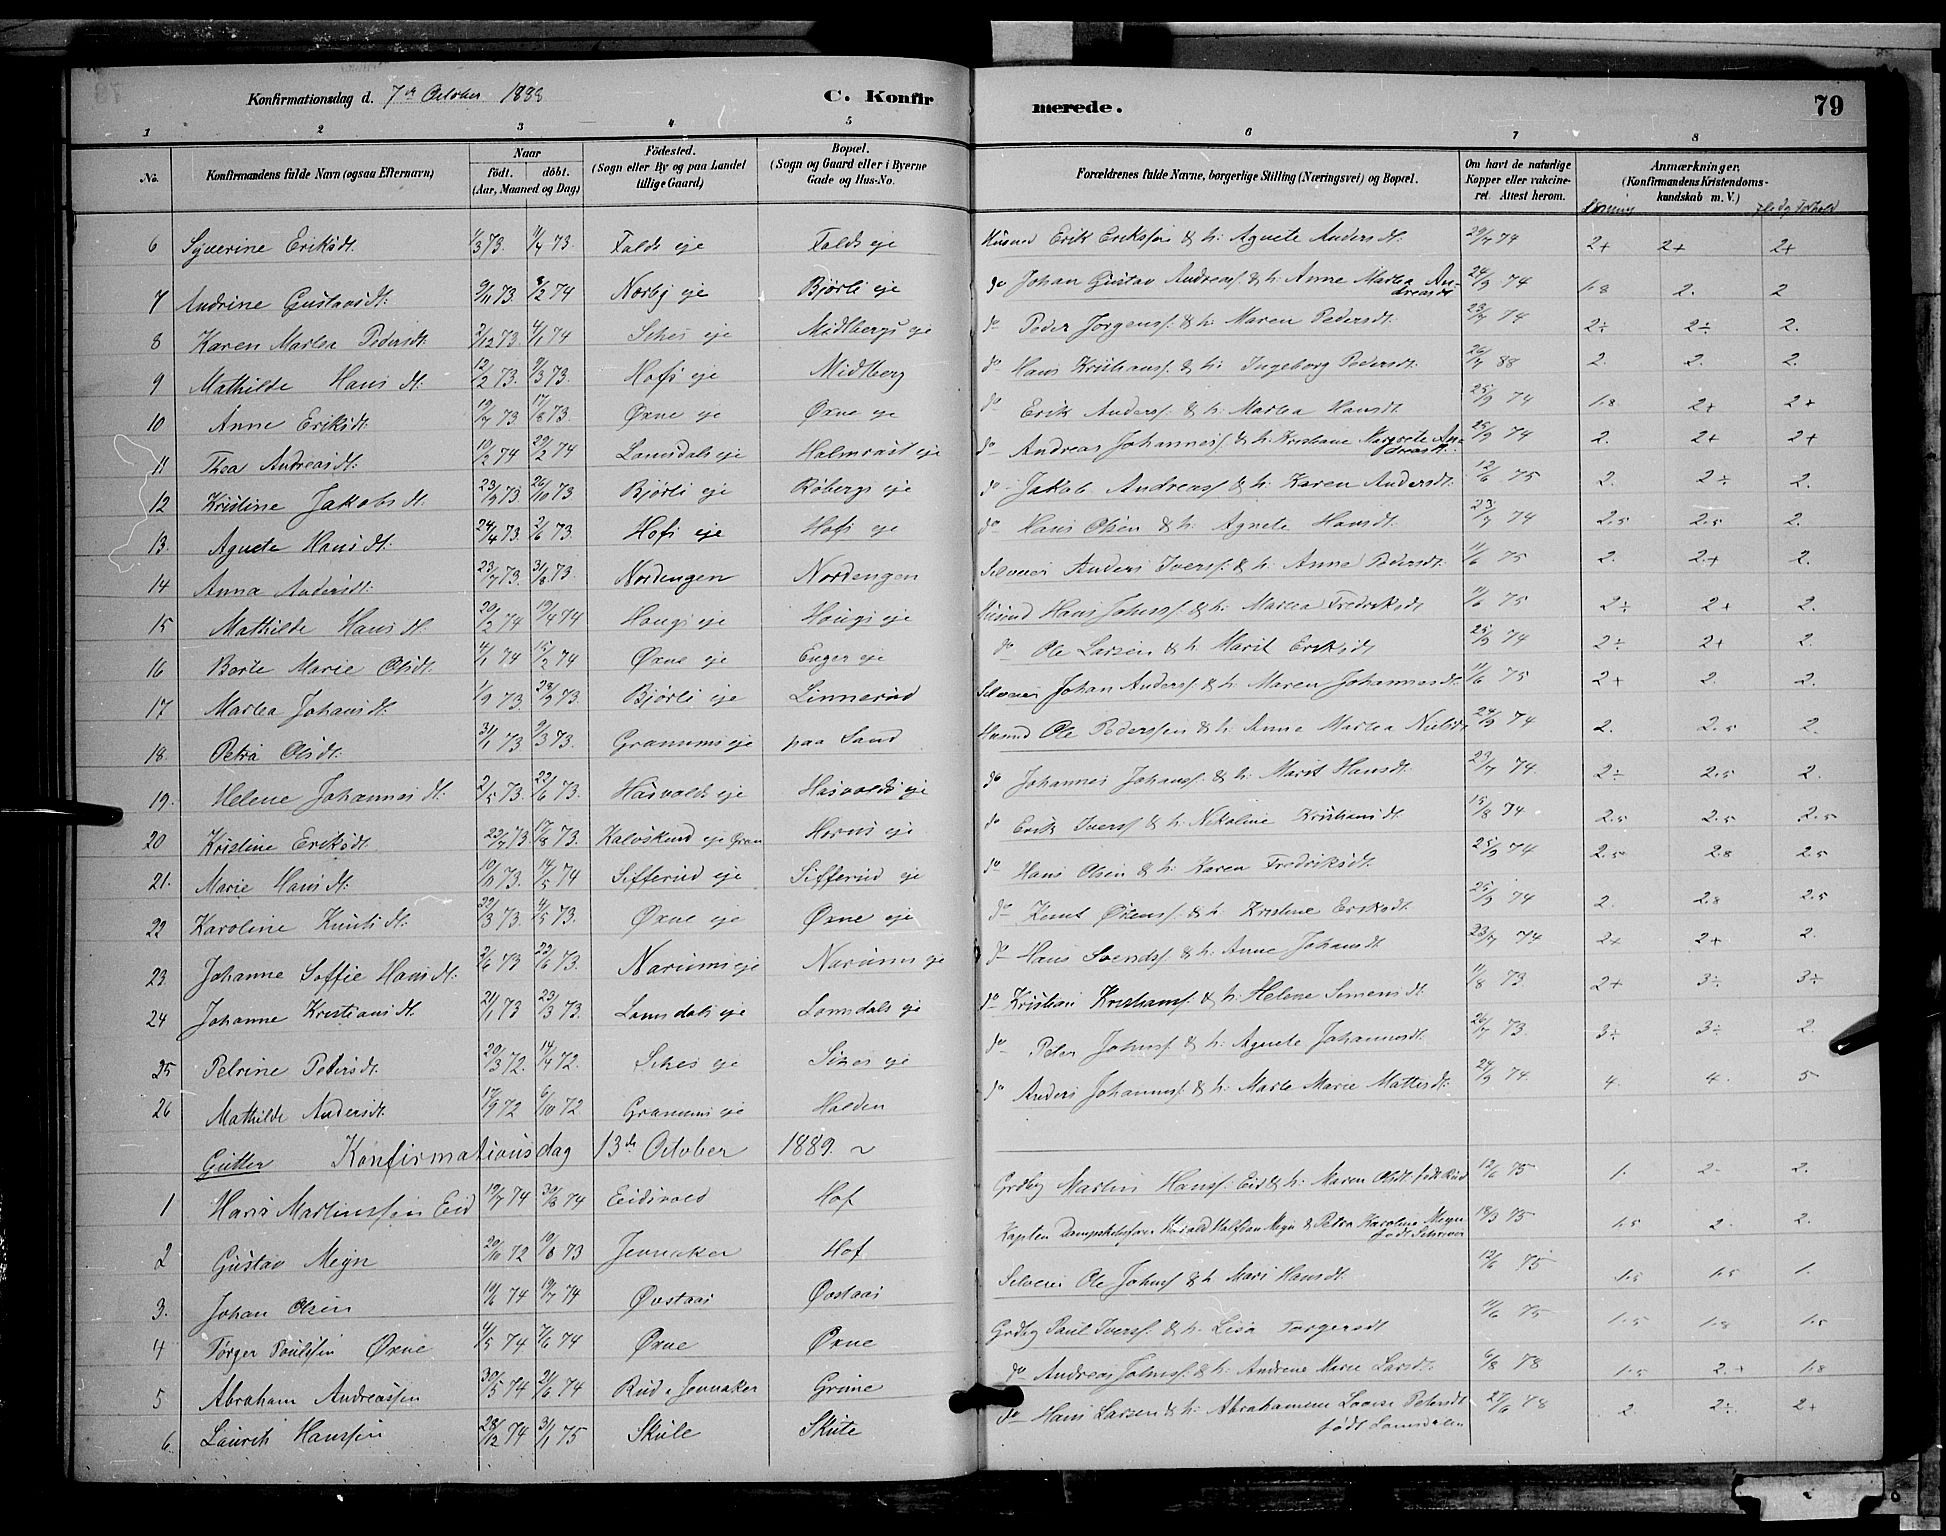 Konfirmationsdag d. 7de October 1888 C. Konfirmerede. 79
1 2 3 4 5 6 7 8
No. Konfirmandens fulde Navn (ogsaa Efternavn) Naar født. døbt. (Aar, Maaned og Dag) Födested. (Sogn eller By og paa Landet tillige Gaard) Bopæl. (Sogn og Gaard eller i Byerne Gade og Hus-No. Forældrenes fulde Navne, borgerlige Stilling (Næringsvei) og Bopæl. Om havt de naturlige Kopper eller vakcineret. Attest herom. Anmærkninger, (Konfirmandens Kristendomskundskab m.V.)
6 Syverine Eriksdt. 1/3 73. 11/4 73. Falds eje Falds eje Husmd Erik Eriksson & h. Agnete Andersdt. 29/7 74 2+ 2+ 2+
7 Andrine Gustavsdt. 9/11 73. 8/2 74 Norby eje Bjørli eje do Johan Gustav Andreasf. & h. Anne Marlea Andreasdt 24/9 74 1.8 2. 2
8 Karen Marlea Pedersdt. 2/12 73. 4/1 74 eje Midlbergs eje do Peder Jørgensf. & h. Maren Pedersdt. 23/7 74 2÷ 2÷ 2.
9 Mathilde Hansdt. 12/2 73. 9/3 73. Hofs eje Midlberg do Hans Kristiansf. & h. Ingeborg Pedersdt. 26/7 88 2. 2. 2.
10 Anne Eriksdt. 19/7 73. 17/8 73. Øxne eje Øxne eje do Erik Andersf. & h. Marlea Hansdt 25/9 74 1.8 2+ 2+
11 Thea Andreasdt. 10/2 74 29/2 74 Lomsdals eje Halmrast eje do Andreas Johannesf. & h. Kristiane Margrete Andreasdt. 25/9 74 2. 2+ 2+
12 Kristine Jakobsdt. 23/9 73 26/10 73 Bjørli eje Røbergs eje do Jakob Andreasf & h. Karen Andersdt. 12/6 75 2. 2÷ 2.
13. Agnete Hansdt. 24/4 73. 2/6 73. Hofs eje Hofs eje do Hans Olsen & h. Agnete Hansdt. 23/7 74 2.5 2.5 2.
14 Anna Andersdt. 23/7 73. 31/8 73. Nordengen Nordengen Selveier Anders Iversf. & h. Anne Pedersdt. 11/6 75 2. 2.+ 2.
15 Mathilde Hansdt. 20/2 74 19/4 74 Hougs eje Hougs eje Husmd Hans Johnsf. & h. Marlea Fredriksdt 11/6 75 2÷ 2+ 2.
16 Berte Marie Olsdt. 4/1 74 15/2 74 Øxne eje Enger eje do Ole Larsen & h. Marit Eriksdt 25/9 74 2÷ 2+ 2.
17 Marlea Johansdt. 1/9 73. 28/9 73. Bjørli eje Linnerud Selveier Johan Andersf. & h. Maren Johannesdt. 11/6 75 2+ 2. 2.
18. Petra Olsdt. 31/1 73 9/3 73. Granums eje paa Sand Husmd Ole Pederssen & h. Anne Marlea Nielsdt 24/9 74 2. 2.5 2.
19. Helene Johannesdt. 2/5 73. 22/6 73. Hasvolds eje Hasvolds eje do Johannes Johansf. & h. Marit Hansdt. 23/7 74. 2÷ 2.5 2.
20 Kristine Eriksdt. 22/7 73. 17/8 73. Kalvskind eje Gran Horns eje do Erik Iversf & h. Nikoline Kristiansdt 15/8 74 2.5 2.5 2.5
21. Marie Hansdt. 10/11 73. 14/5 74 Sifferud eje Sifferud eje do Hans Olsen & h. Karen Fredriksdt. 25/9 74 2.5 2.8 2.5
22 Karoline Knutsdt. 22/3 73. 4/5 73. Øxne eje Øxne eje do Knut & h. Kristine Eriksdt. 25/9 74 2. 2.8 2.5
23. Johanne Soffie Hansdt. 2/6 73 22/6 73. Narums eje Narums eje do Hans Svendsf. & h. Anne Johansdt 23/7 74 2+ 2+ 2.
24 Johanne Kristiansdt. 21/1 73 23/3 73. Lomsdals eje Lomsdals eje do Kristian Kristiansf. & h. Helene Simensdt. 11/8 73. 2+ 3÷ 3÷
25 Petrine Petersdt. 20/3 72. 14/4 72. eje eje do Peter Johnsf. & h. Agnete Johannesdt. 26/7 73. 3÷ 3÷ 2.
26 Mathilde Andersdt. 17/9 72 6/10 72 Granums eje Halden do Anders Johannesf. & h. Marte Marie Mattisdt. 24/9 74 4. 4. 5
Gutter Konfirmationsdag 13de October 1889.
1 Hans Martinssen Eid 19/7 74 30/8 74 Eidsvold Hof Grdbg Martin Hansf. Eid & h. Maren Olsdt. født Rud 12/6 75 1. 2. 2.
2 Gustav Meyn 20/10 72 10/8 73 Jevnaker Hof Kaptein Dampskibsfører Halfdan Meyn & Petra Karoline Meyn født Schriver 18/3 75 1.5 2. 2.
3. Johan Olsen 10/6 74 19/7 74 Øvstaas Øvstaas Selveier Ole Johnsf & h. Mari Hansdt. 12/6 75 1.5 1.5 1.
4 Torger Paulssen Øxne 4/5 74 7/6 74 Øxne Øxne Grdbg Paul Iversf. & h. Lisa Torgersdt 11/6 75 1.5 1.8 1.5
5 Abraham Andreassen 30/5 74 21/6 74 Rud i Jevnaker Grime do Andreas Johnsf. & h. Andrene Marie Larsdt. 6/8 78 1.5 2.+ 1.8
6. Laurits Hanssen 28/12 74 3/1 75 Skute Skute do Hans Larsen & h. Abrahamine Lovise Petersdt født Lomsdalen 21/6 78 2. 2÷ 2+